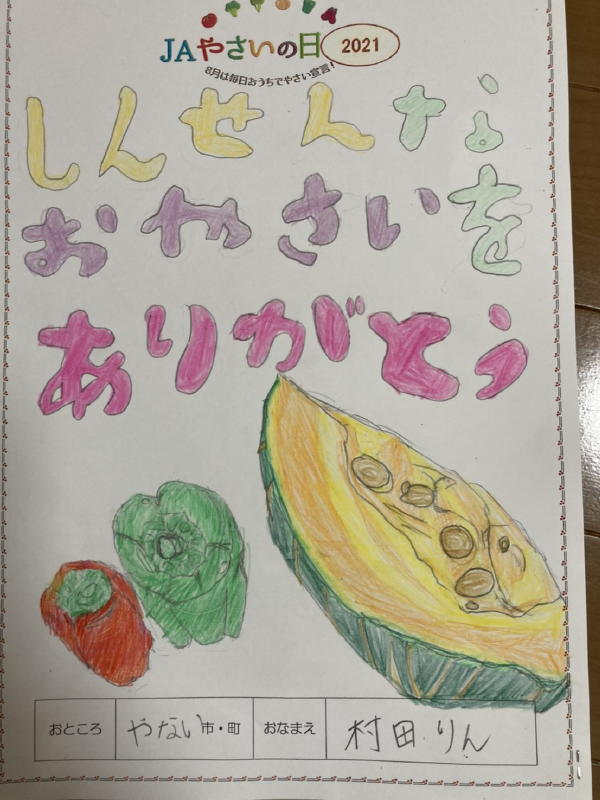 JAやさいの日 2021
8月は毎日おうちでやさい宣言!
しんせんな
おやさいを
ありがとう
おところ やない 市・町 おなまえ 村田りん